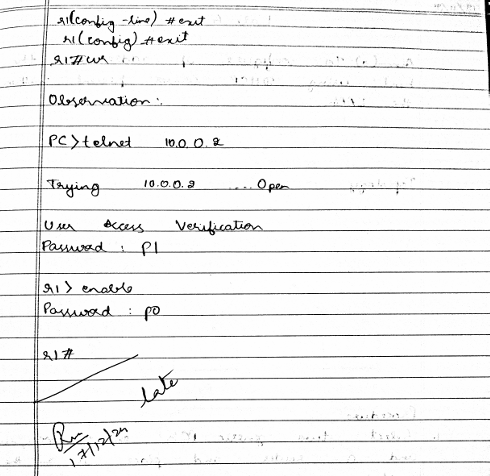 r1(config-line)#exit
r1(config)#exit
r1#wr
Observation:
PC>telnet 10.0.0.2
Trying 10.0.0.2 ....Open
User Access Verification
Password : p1
r1> enable
Password : p0
r1#
late
17/12/24